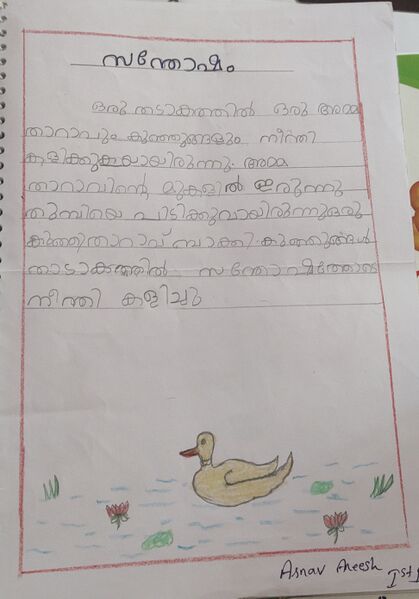 സന്തോഷം
ഒരു തടാകത്തിൽ ഒരു അമ്മ
താറാവും കുഞ്ഞുങ്ങളും നീന്തി
കളിക്കുകയായിരുന്നു. അമ്മ
താറാവിന്റെ മുകളിൽ ഇരുന്നു
തുമ്പിയെ പിടിക്കുവായിരുന്നു ഒരു
കുഞ്ഞിതാറാവ് ബാക്കി കുഞ്ഞുങ്ങൾ
താടാകത്തിൽ സന്തോഷത്തോടെ
നീന്തി കളിച്ചു
Asnav Aneesh Ist